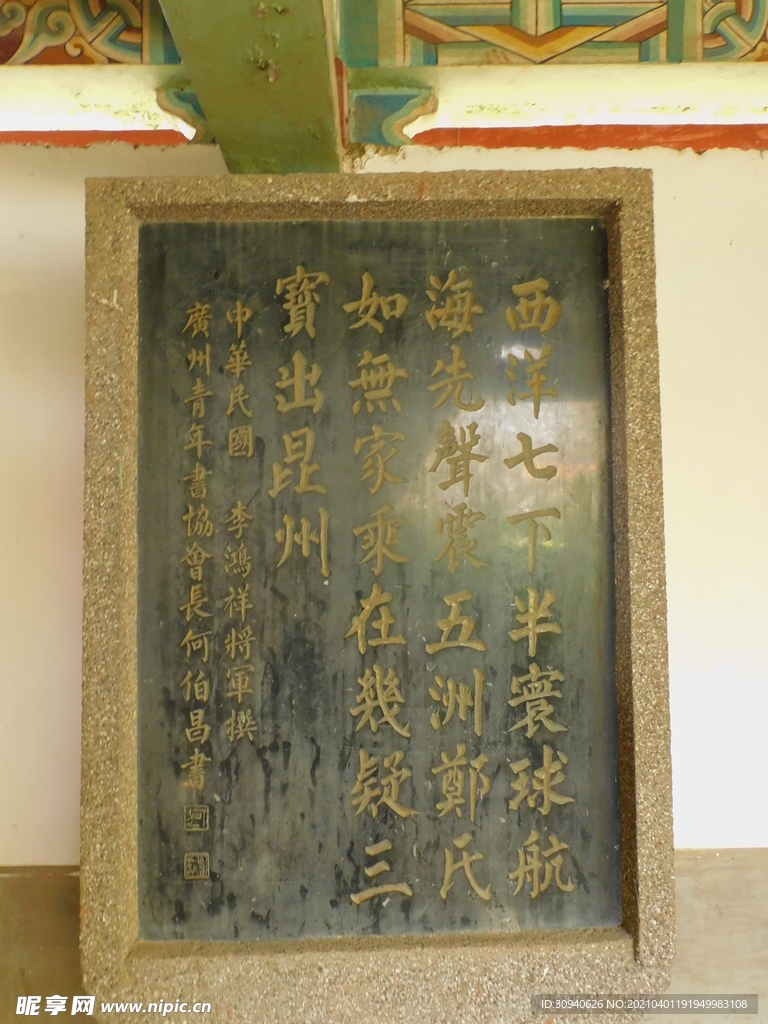 西洋七下半寰球航
海先聲震五洲鄭氏
如無家乘在幾疑三
寶出昆州
中華民國 李鴻祥將軍撰
廣州青年書協會長何伯昌書
昵享网 www.nipic.cn
ID:30940626 NO:20210401191949983108